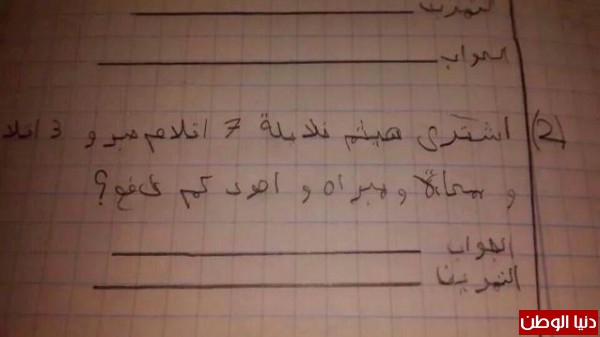 التمرين
الجواب
(2) اشترى هيثم فلابلة 7 اقلام حبر و 3 اقلا
و محاة و مبراه و اهود كم دفع؟
الجواب
التمرين
دنيا الوطن